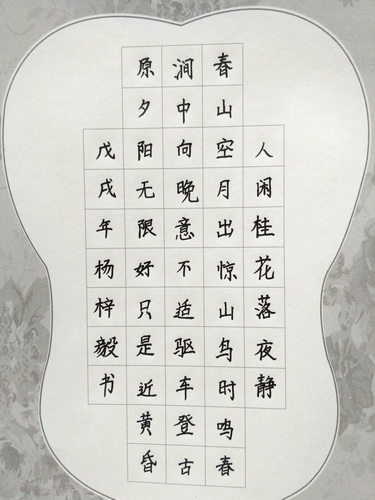 人闲桂花落夜静
春山空月出惊山鸟时鸣春
涧中向晚意不适驱车登古
原夕阳无限好只是近黄昏
戊戌年杨梓毅书